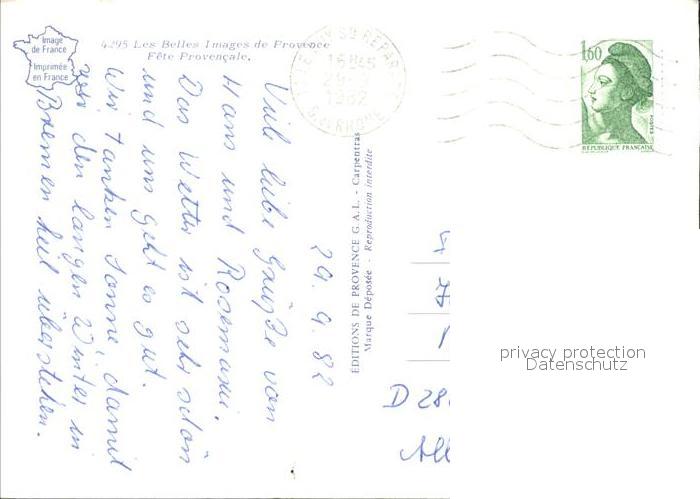 Image
de France
Imprimée
en France
4295 Les Belles Images de Provence
Fête Provençale.
1,60
POSTES
RÉPUBLIQUE FRANÇAISE
1982
B. DU RHONE
29.9.82
Viele liebe Grüße von
Hans und Rosemarie.
Das Wetter ist sehr schön
und uns geht es gut.
Wir tanken Sonne, damit
wir den langen Winter in
Bremen heil überstehen.
EDITIONS DE PROVENCE G.A.L. - Carpentras
Marque Déposée - Reproduction interdite
D 28
All
privacy protection
Datenschutz